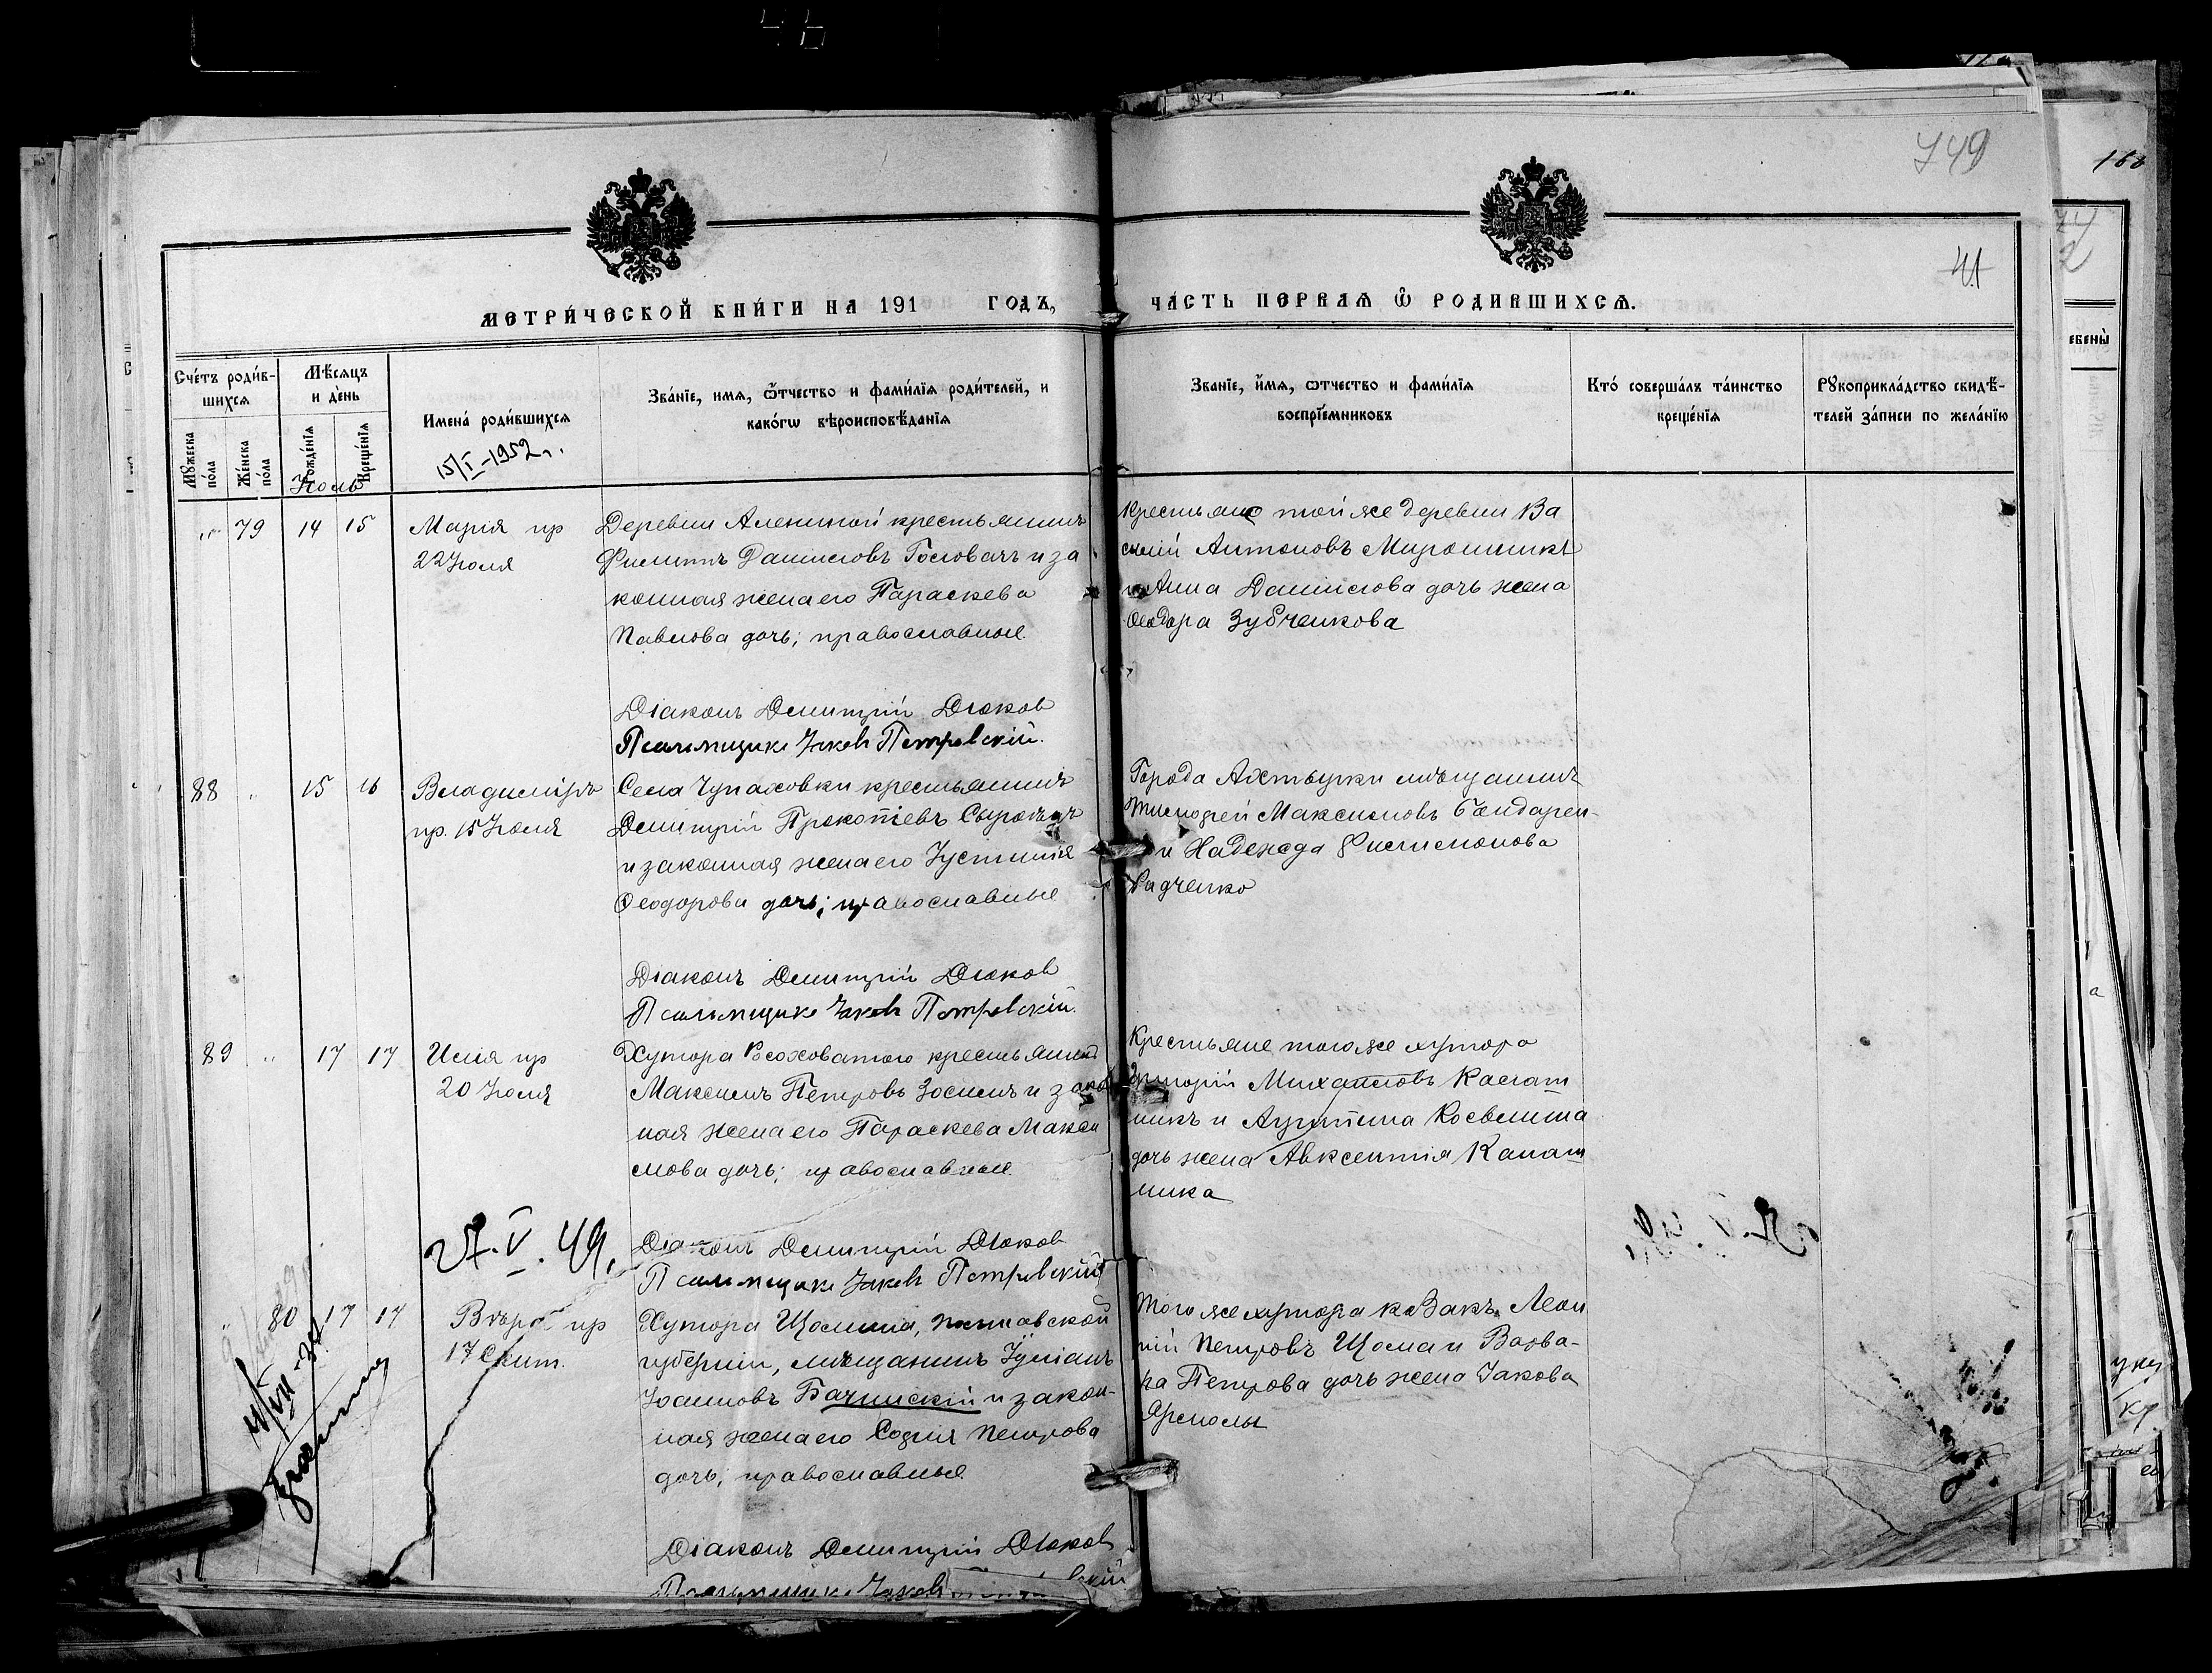 749
41
МЕТРИ́ЧЕСКОЙ КНИ́ГИ НА 191 ГОДЪ,
ЧА́СТЬ ПЕРВАЯ Ѿ РОДИВШИХСѦ.
Сче́тъ роди́в-
шихсѧ
Мꙋ́жеска по́ла
Же́нска по́ла
Мѣ́сѧцъ
и де́нь
Рожде́нїѧ
Креще́нїѧ
Имена̀ роди́вшихсѧ
Зва́нїе, имѧ, ѻ́тчество и фами́лїѧ роди́телей, и
како́гѡ вѣроисповѣ́данїѧ
Зва́нїе, и́мѧ, ѻтчество и фами́лїѧ
воспрїе́мниковъ
Кто́ соверша́лъ та́инство
креще́нїѧ
Рꙋкоприкла́дство свидѣ́-
телей за́писи по жела́нїю
15/I-1952 г.
Іюль
79 14 15
Марія пр
22 Іюля
Деревни Алениной крестьянинъ
Филиппъ Данииловъ Головачъ и за
конная жена его Параскева
Павлова дочь; православные
Крестьяне той же деревни Ва
силій Антоновъ Мирошникъ
и Анна Даниилова дочь жена
Ѳеодора Зубченкова
Діаконъ Димитрій Дюков
Псаломщикъ Іаковъ Петровскій.
88 15 16
Владиміръ
пр. 15 Іюля
Села Чупаховки крестьянинъ
Димитрій Прокопіевъ
и законная жена его Іустинія
Ѳеодорова дочь; православные
Города Ахтырки мѣщанинъ
Тимофей Максимовъ Бондарен-
и Надежда Филимонова
Радченко
Діаконъ Димитрій Дюков
Псаломщикъ Іаковъ Петровскій.
89 17 17
Илія пр
20 Іюля
Хутора Росоховатого крестьянинъ
Максимъ Петровъ Зосимъ и закон
ная жена его Параскева Макси
мова дочь; православные.
Крестьяне того же хутора
Григорій Михаиловъ Канат
никъ и
дочь жена Авксентія Канат
ника
27.V.49.
Діаконъ Димитрій Дюков
Псаломщикъ Іаковъ Петровскій
80 17 17
Вѣра пр
17 Сент.
Хутора Щомина, Полтавской
губерніи, мѣщанинъ Іуліанъ
Іоанновъ Бачинскій и закон-
ная жена его Софія Петрова
дочь; православные
Того же хутора козакъ Леон
тій Петровъ Щома и Варва-
ра Петрова дочь жена Іакова
Ярмолы
Діаконъ Димитрій Дюков
Псаломщикъ Іаковъ